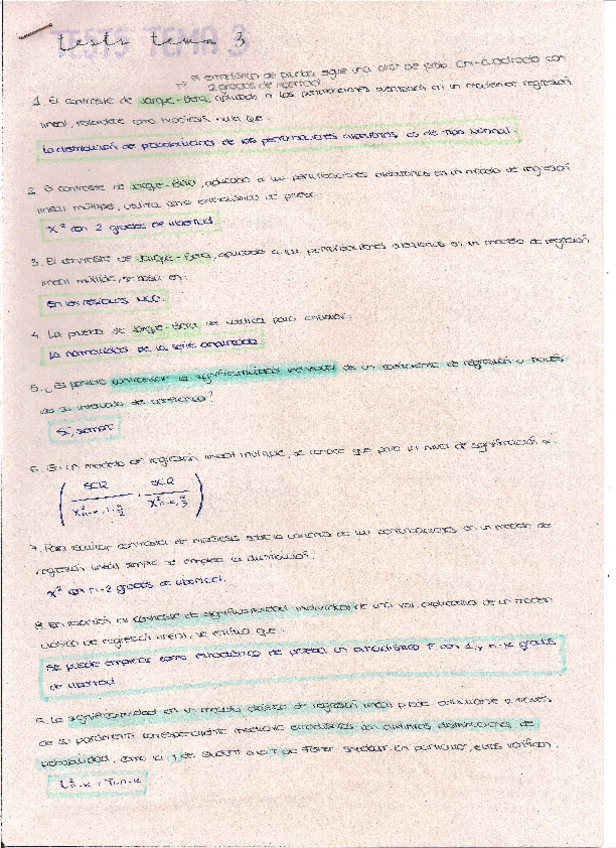 tests tema 3
el estadístico de prueba sigue una dist. de prob. Chi-cuadrado con
2 grados de libertad
1. El contraste de Jarque-Bera, aplicado a las perturbaciones aleatorias en un modelo de regresión
lineal, establece como hipótesis nula que:
La distribución de probabilidad de las perturbaciones aleatorias es de tipo Normal.
2. El contraste de Jarque-Bera, aplicado a las perturbaciones aleatorias en un modelo de regresión
lineal múltiple, utiliza como estadístico de prueba:
X² con 2 grados de libertad.
3. El contraste de Jarque-Bera, aplicado a las perturbaciones aleatorias en un modelo de regresión
lineal múltiple, se basa en:
En los residuos MCO.
4. La prueba de Jarque-Bera se utiliza para analizar:
La normalidad de la serie analizada.
5. ¿Es posible contrastar la significatividad individual de un coeficiente de regresión a través
de su intervalo de confianza?
Sí, siempre
6. En un modelo de regresión lineal múltiple, se conoce que para un nivel de significación α:
( SCR / X² n-k, 1-α/2 , SCR / X² n-k, α/2 )
7. Para realizar contrastes de hipótesis sobre la varianza de las perturbaciones en un modelo de
regresión lineal simple se emplea la distribución:
X² con n-2 grados de libertad.
8. En relación al contraste de significatividad individual de una var. explicativa de un modelo
clásico de regresión lineal, se verifica que:
Se puede emplear como estadístico de prueba un estadístico F con 1 y n-k grados
de libertad
9. La significatividad en un modelo clásico de regresión lineal puede evaluarse a través
de su parámetro correspondiente mediante estadísticos con distintas distribuciones de
probabilidad, como la t de Student o la F de Fisher Snedecor. En particular, estos verifican:
t² n-k = F1, n-k